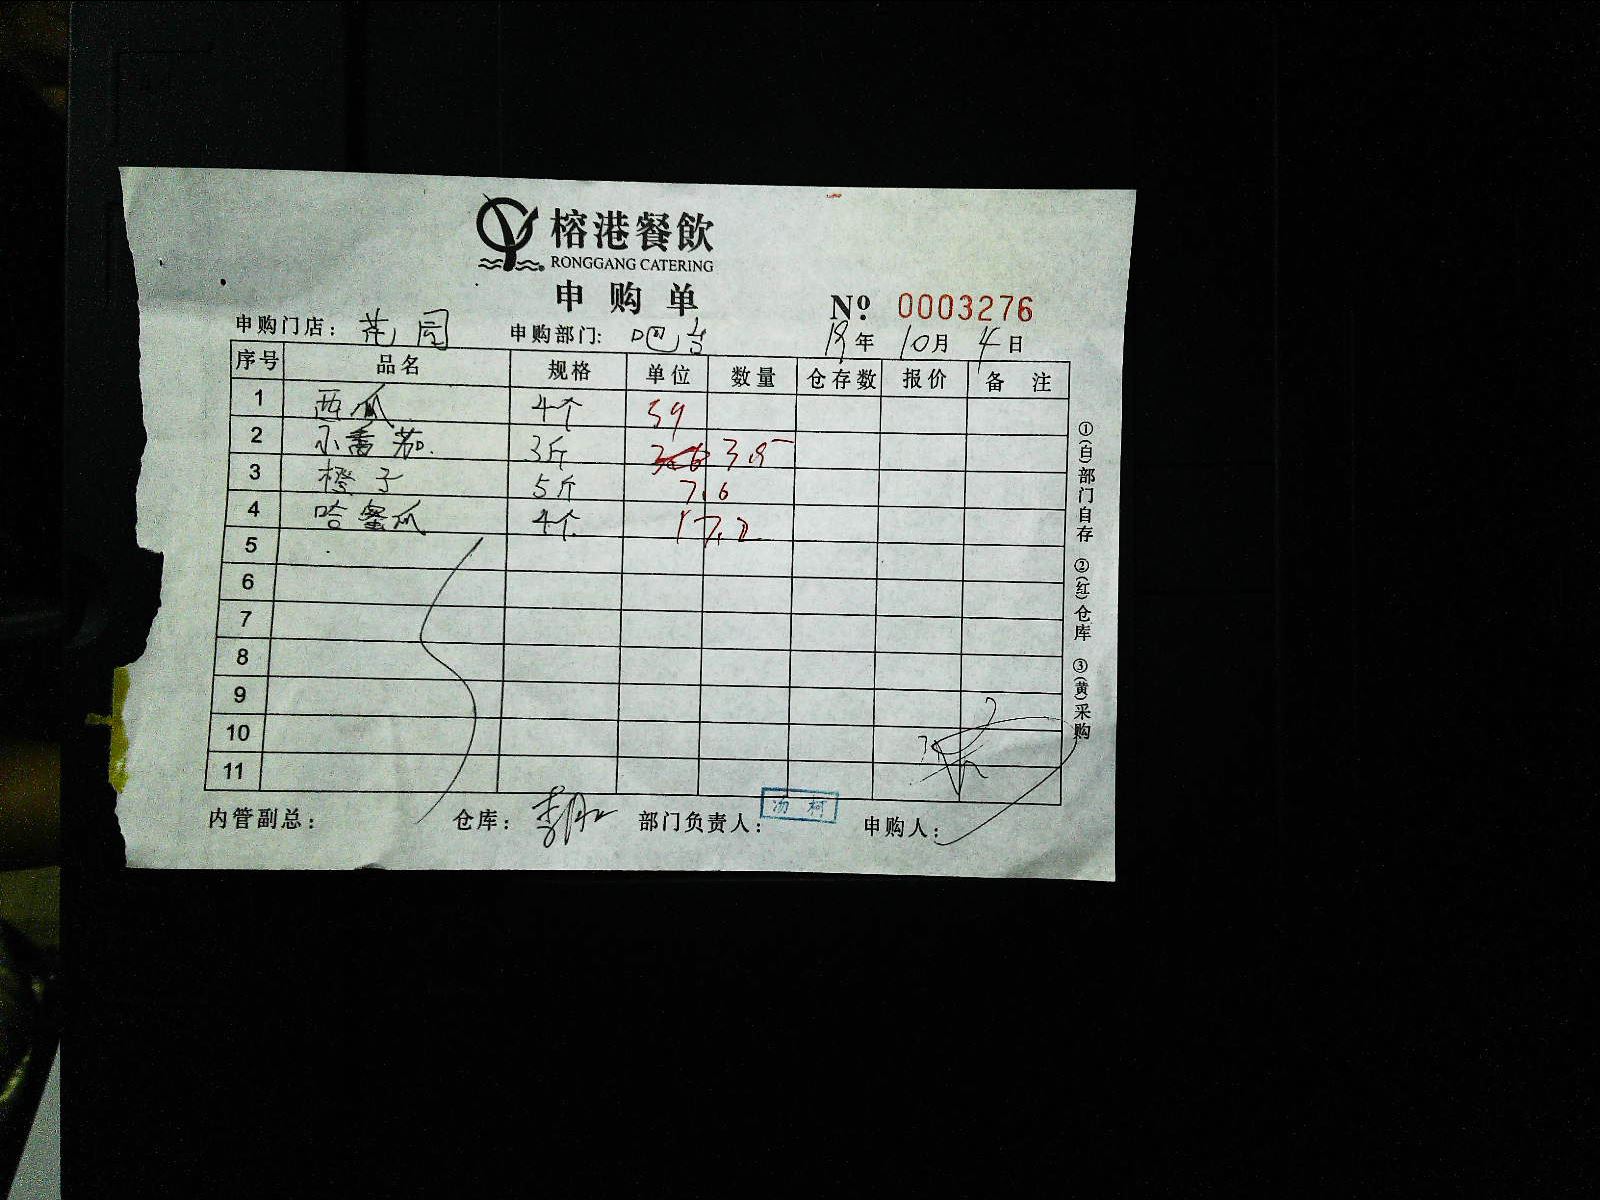 榕港餐飲
RONGGANG CATERING
申购单
№ 0003276
申购门店: 花园 申购部门: 吧台 18年 10月 4日
序号 品名 规格 单位 数量 仓存数 报价 备 注
1 西瓜 4个 59
2 小番茄. 3斤 3.5
3 橙子 5斤 7.6
4 哈蜜瓜 4个 17.2
5
6
7
8
9
10
11
内管副总: 仓库: 部门负责人: 汤柯 申购人:
①(白)部门自存 ②(红)仓库 ③(黄)采购